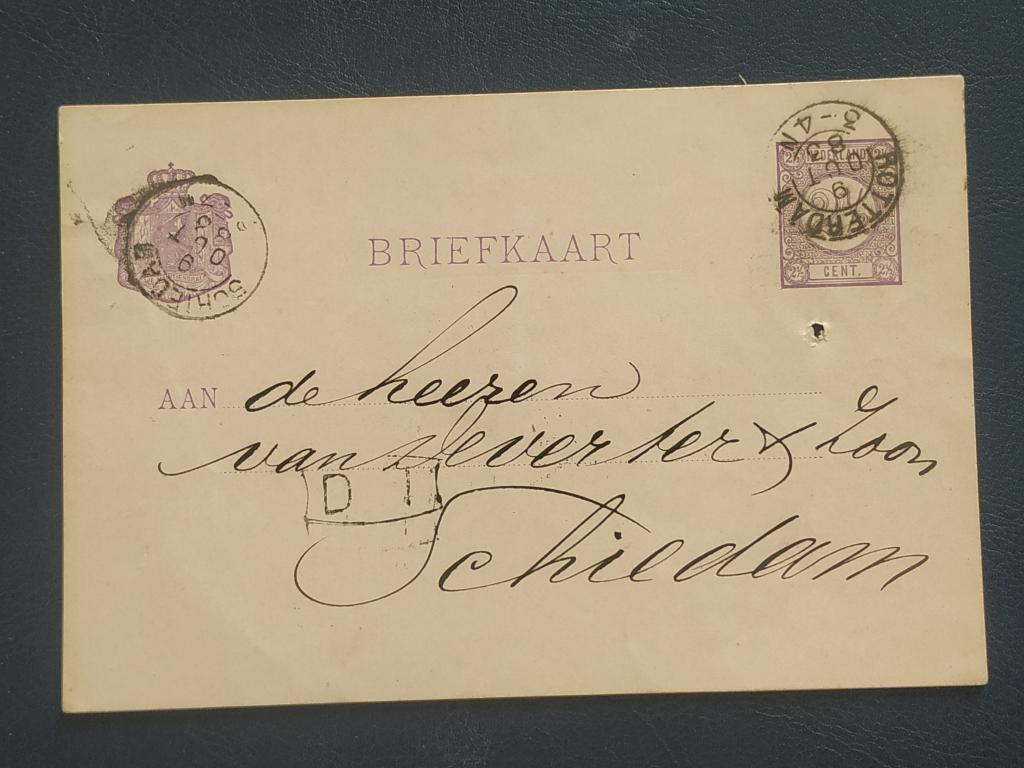 ROTTERDAM
3-4 N
9
OCT
83
NEDERLAND
2½ CENT. 2½
SCHIEDAM
9
OCT
BRIEFKAART
AAN de heeren
van Deverter & Zoon
D
Schiedam